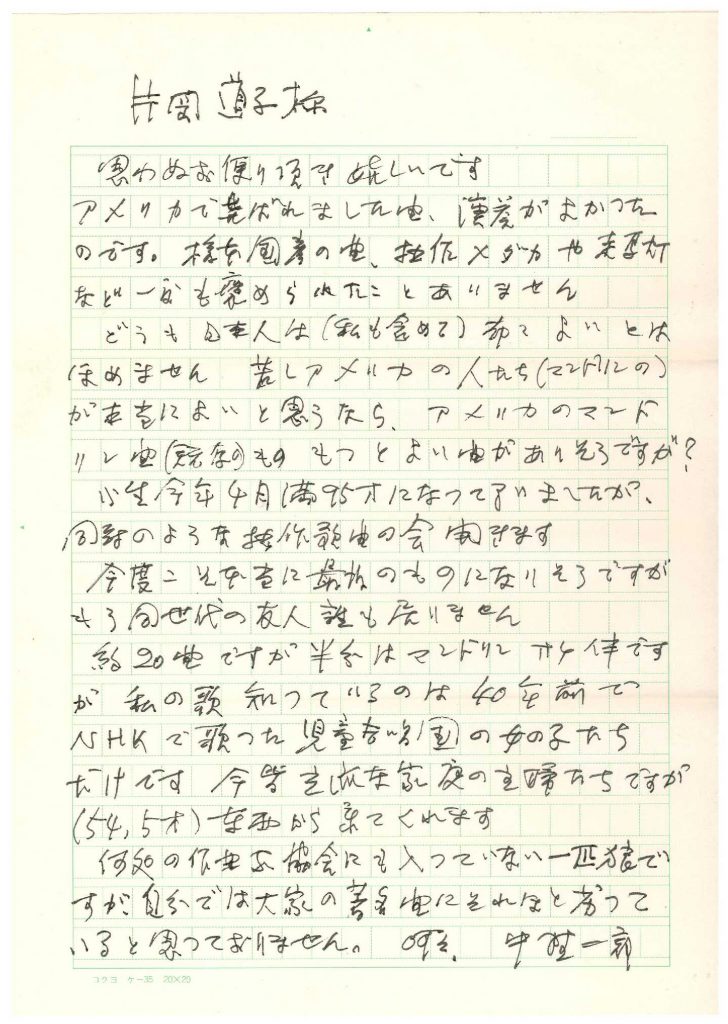 片岡道子様
思わぬお便り頂き嬉しいです
アメリカで喜ばれました由、演奏がよかった
のです。様な国産の曲、拙作メダカや走馬灯
など一度も褒められたことありません
どうも日本人は(私も含めて)却々よいとは
ほめません 若しアメリカの人たち(マンドリンの)
が本当によいと思うなら、アメリカのマンド
リン曲(既存の)もの もっとよい曲がありそうですが?
小生今年4月満95才になって了いましたが、
同封のような拙作歌曲の会開きます
今度こそ本当に最後のものになりそうですが
もう同世代の友人誰も居りません
約20曲ですが半分はマンドリンオケ伴です
が 私の歌 知っているのは 40年前で
NHKで歌った児童合唱団の女の子たち
だけです 今皆立派な家庭の主婦たちですが
(54,5才)東西から来てくれます
何処の作曲家協会にも入っていない一匹狼で
すが自分では大家の著名曲にそれほど劣って
いると思っておりません。 中野二郎
コクヨ ケー35 20×20